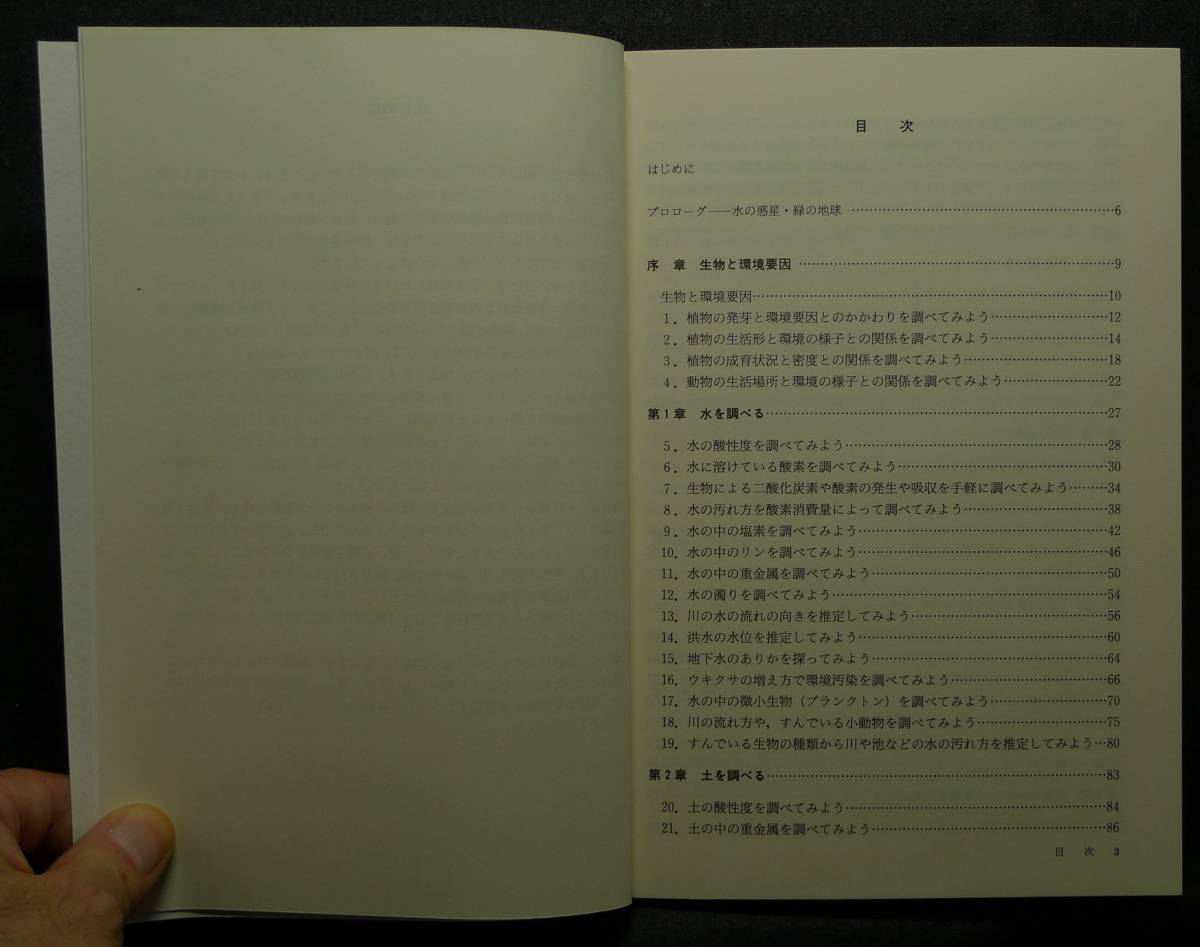 目　次
はじめに
プロローグ――水の惑星・緑の地球 ……………………………………………………6
序　章　生物と環境要因 ………………………………………………………………9
生物と環境要因………………………………………………………………………10
1．植物の発芽と環境要因とのかかわりを調べてみよう………………………12
2．植物の生活形と環境の様子との関係を調べてみよう………………………14
3．植物の成育状況と密度との関係を調べてみよう……………………………18
4．動物の生活場所と環境の様子との関係を調べてみよう……………………22
第1章　水を調べる……………………………………………………………………27
5．水の酸性度を調べてみよう……………………………………………………28
6．水に溶けている酸素を調べてみよう…………………………………………30
7．生物による二酸化炭素や酸素の発生や吸収を手軽に調べてみよう………34
8．水の汚れ方を酸素消費量によって調べてみよう……………………………38
9．水の中の塩素を調べてみよう…………………………………………………42
10．水の中のリンを調べてみよう…………………………………………………46
11．水の中の重金属を調べてみよう………………………………………………50
12．水の濁りを調べてみよう………………………………………………………54
13．川の水の流れの向きを推定してみよう………………………………………56
14．洪水の水位を推定してみよう…………………………………………………60
15．地下水のありかを探ってみよう………………………………………………64
16．ウキクサの増え方で環境汚染を調べてみよう………………………………66
17．水の中の微小生物（プランクトン）を調べてみよう………………………70
18．川の流れ方や，すんでいる小動物を調べてみよう…………………………75
19．すんでいる生物の種類から川や池などの水の汚れ方を推定してみよう…80
第2章　土を調べる……………………………………………………………………83
20．土の酸性度を調べてみよう……………………………………………………84
21．土の中の重金属を調べてみよう………………………………………………86
目　次　3